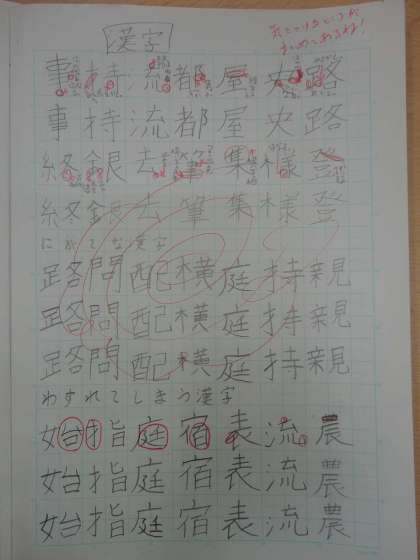 漢字
気をつけるところが
まとめてあるね！
事持流都屋央路
事持流都屋央路
終銀去筆集様登
終銀去筆集様登
にがてな漢字
路問配横庭持親
路問配横庭持親
路問配横庭持親
わすれてしまう漢字
始指庭宿表流農
始指庭宿表流農
始指庭宿表流農